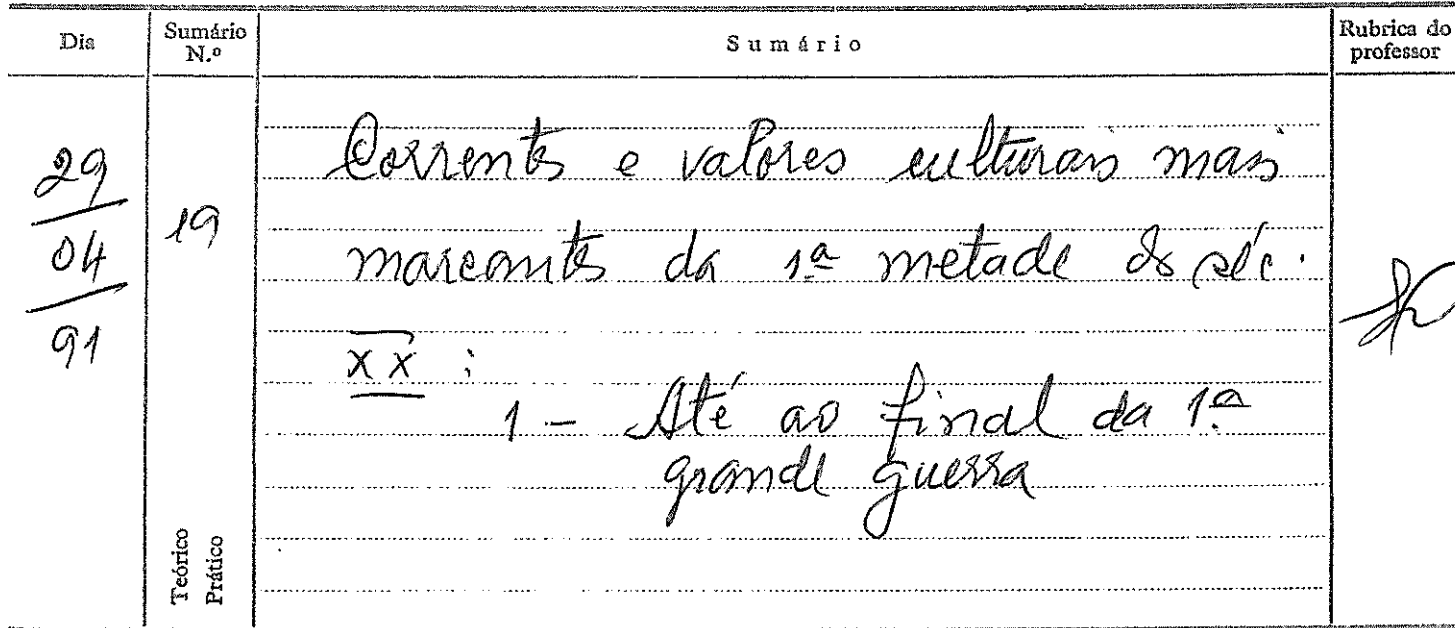 Dia
Sumário N.º
Sumário
Rubrica do professor
29
04
91
19
Correntes e valores culturais mais
marcantes da 1ª metade do séc.
XX :
1 - Até ao final da 1ª
grande guerra
Teórico
Prático